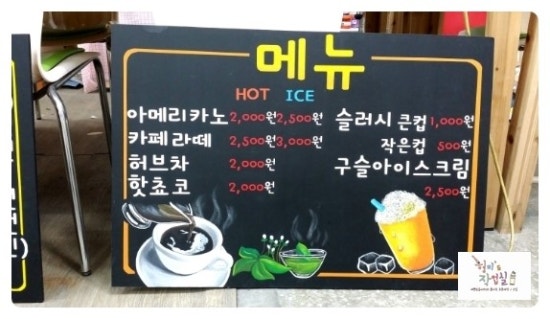 메뉴
HOT ICE
아메리카노 2,000원 2,500원
카페라떼 2,500원 3,000원
허브차 2,000원
핫쵸코 2,000원
슬러시 큰컵 1,000원
작은컵 500원
구슬아이스크림
2,500원